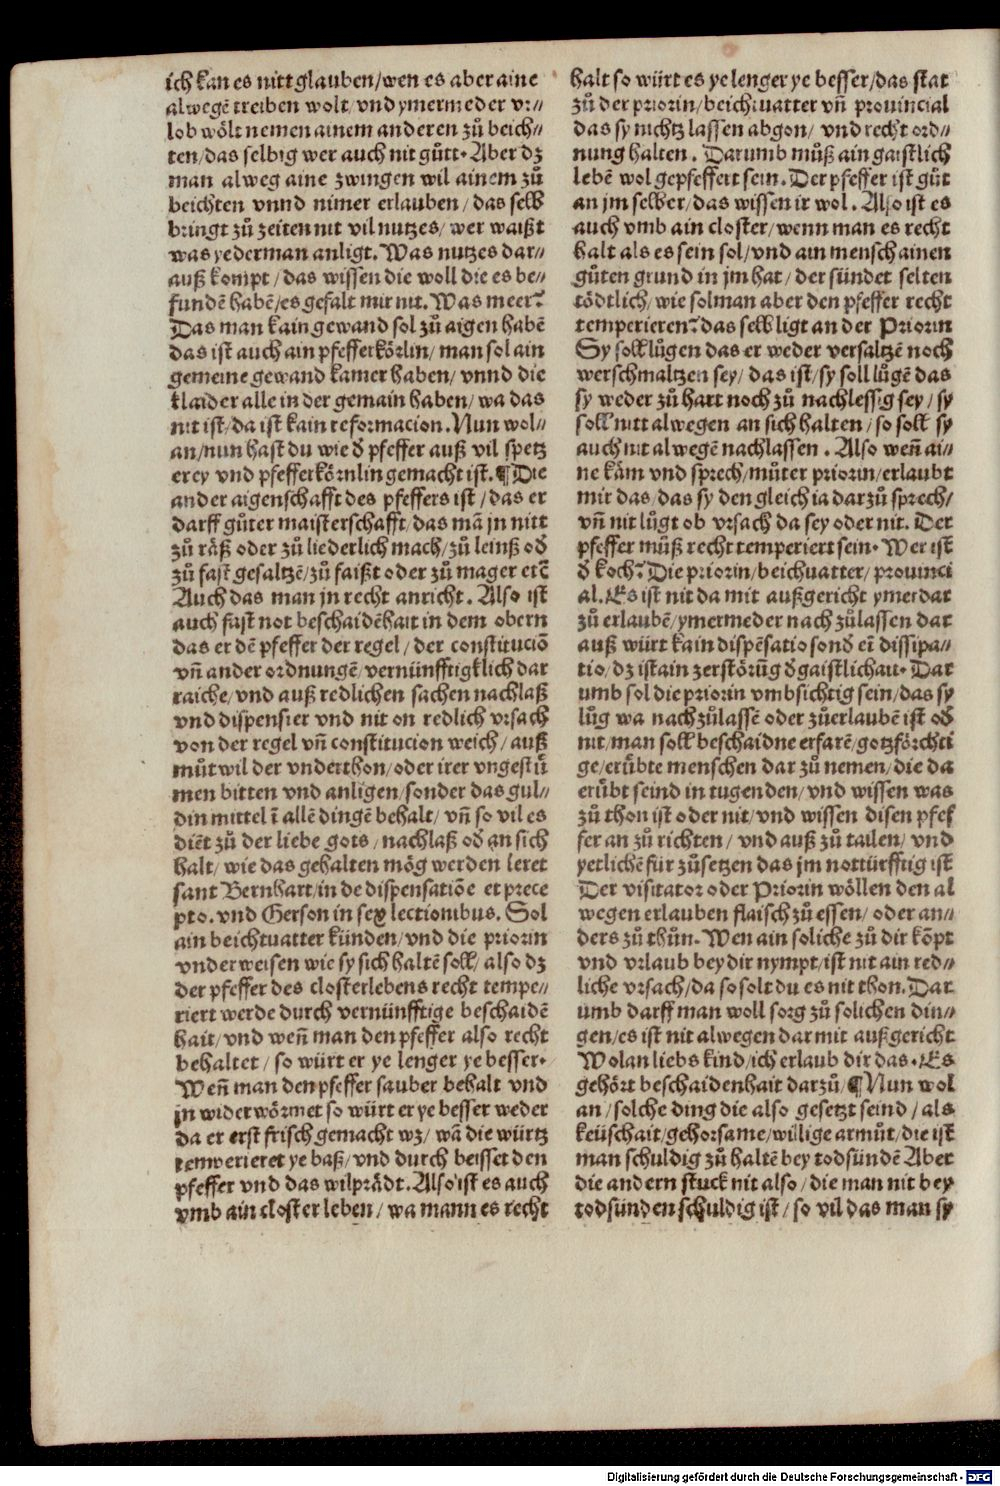 ich kan es nitt glauben/wen es aber aine
alwegē treiben wolt/vnd ymermeder vr⸗
lob wölt nemen ainem anderen zů beich⸗
ten/das selbig wer auch nit gůtt. Aber dz
man alweg aine zwingen wil ainem zů
beichten vnnd nimer erlauben/das selb
bringt zů zeiten nit vil nutzes/wer waißt
was yederman anligt. Was nutzes dar⸗
auß kompt/das wissen die woll die es be⸗
fundē habē/es gefalt mir nit. Was meer?
Das man kain gewand sol zů aigen habē
das ist auch ain pfefferkörlin/man sol ain
gemeine gewand kamer haben/vnnd die
klaider alle in der gemain haben/wa das
nit ist/da ist kain reformacion. Nun wol⸗
an/nun hast du wie đ pfeffer auß vil spetz
erey vnd pfefferkörnlin gemacht ist. ¶ Die
ander aigenschafft des pfeffers ist/das er
darff gůter maisterschafft/das mā jn nitt
zů räß oder zů liederlich mach/zů leinß ođ
zů fast gesaltzē/zů faißt oder zů mager etc̄
Auch das man jn recht anricht. Also ist
auch fast not beschaidēhait in dem obern
das er dē pfeffer der regel/der constituciō
vñ ander ordnungē/vernünfftigklich dar
raiche/vnd auß redlichen sachen nachlaß
vnd dispensier vnd nit on redlich vrsach
von der regel vñ constitucion weich/auß
můtwil der vnderthon/oder irer vngestü
men bitten vnd anligen/sonder das gul⸗
din mittel ī allē dingē behalt/vñ so vil es
diēt zů der liebe gots/nachlaß ođ an sich
halt/wie das gehalten mög werden leret
sant Bernhart/in de dispensatiōe et prece
pto. vnd Gerson in sex lectionibus. Sol
ain beichtuatter künden/vnd die priorin
vnderweisen wie sy sich haltē soll/also dz
der pfeffer des closterlebens recht tempe⸗
riert werde durch vernünfftige beschaidē
hait/vnd weñ man den pfeffer also recht
behaltet/so würt er ye lenger ye besser.
Weñ man den pfeffer sauber behalt vnd
jn widerwörmet so würt er ye besser weder
da er erst frisch gemacht wz/wā die würtz
temperieret ye baß/vnd durch beisset den
pfeffer vnd das wilprädt. Also ist es auch
vmb ain closter leben/wa mann es recht
halt so würt es ye lenger ye besser/das stat
zů der priorin/beichtuatter vñ prouincial
das sy nichtz lassen abgon/vnd recht ord⸗
nung halten. Darumb můß ain gaistlich
lebē wol gepfeffert sein. Der pfeffer ist gůt
an jm selber/das wissen ir wol. Also ist es
auch vmb ain closter/wenn man es recht
halt als es sein sol/vnd ain mensch ainen
gůten grund in jm hat/der sündet selten
tödtlich/wie sol man aber den pfeffer recht
temperieren? das selb ligt an der Priorin
Sy soll lůgen das er weder versaltzē noch
werschmaltzen sey/das ist/sy soll lůgē das
sy weder zů hart noch zů nachlessig sey/sy
soll nitt alwegen an sich halten/so soll sy
auch nit alwegē nachlassen. Also weñ ai⸗
ne käm vnd sprech/můter priorin/erlaubt
mir das/das sy den gleich ia dar zů sprech/
vñ nit lůgt ob vrsach da sey oder nit. Der
pfeffer můß recht temperiert sein. Wer ist
đ koch? Die priorin/beichuatter/prouinci
al. Es ist nit da mit außgericht ymerdar
zů erlaubē/ymermeder nach zůlassen dar
auß würt kain dispēsatio sonđ eī dissipa⸗
tio/dz ist ain zerstörūg đ gaistlichait. Dar
umb sol die priorin vmbsichtig sein/das sy
lůg wa nachzůlassē oder zůerlaubē ist ođ
nit/man soll beschaidne erfarē/gotzförchti
ge/erübte menschen dar zů nemen/die da
erübt seind in tugenden/vnd wissen was
zů thon ist oder nit/vnd wissen disen pfef
fer an zů richten/vnd auß zů tailen/vnd
yetlichē für zůsetzen das jm nottürfftig ist
Der visitator oder Priorin wöllen den al
wegen erlauben flaisch zů essen/oder an⸗
ders zů thůn. Wen ain soliche zů dir kōpt
vnd vrlaub bey dir nympt/ist nit ain red⸗
liche vrsach/da so solt du es nit thon. Dar
umb darff man woll sorg zů solichen din⸗
gen/es ist nit alwegen dar mit außgericht
Wolan liebs kind/ich erlaub dir das. Es
gehört beschaidenhait darzů/¶ Nun wol
an/solche ding die also gesetzt seind/als
keüschait/gehorsame/willige armůt/die ist
man schuldig zů haltē bey todsündē Aber
die andern stuck nit also/die man nit bey
todsünden schuldig ist/so vil das man sy
Digitalisierung gefördert durch die Deutsche Forschungsgemeinschaft - DFG